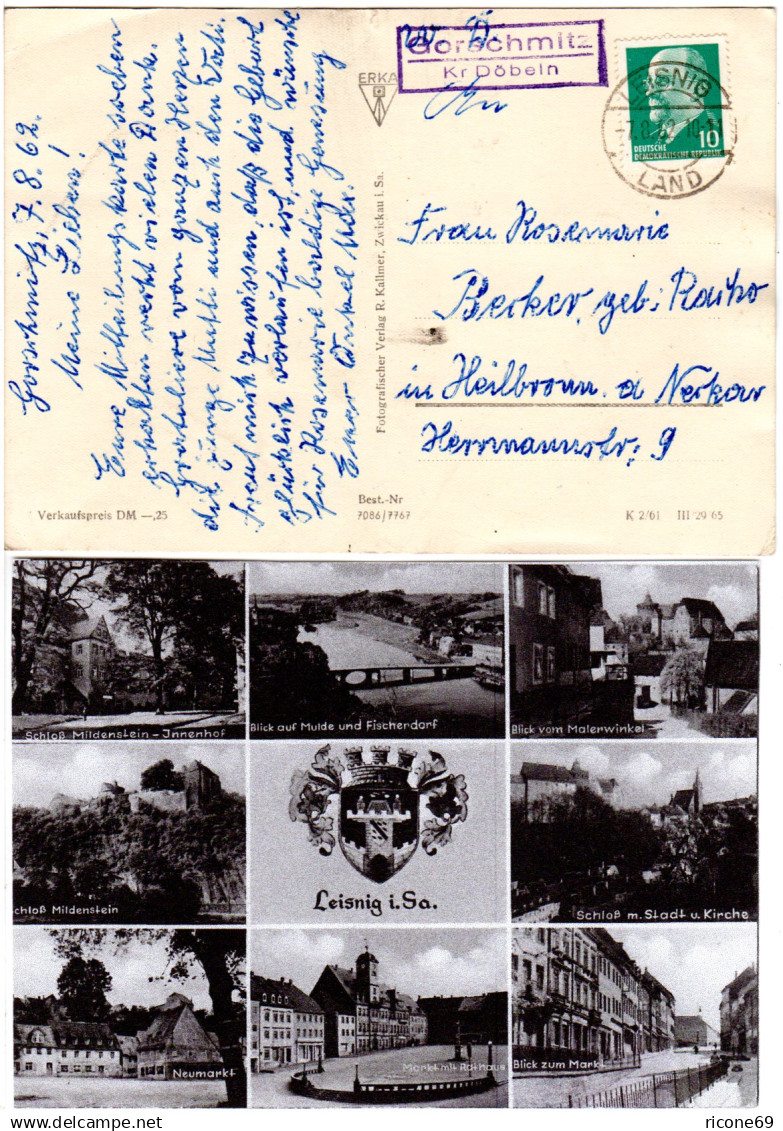 Gorschmitz, 7.8.62.
Meine Lieben!
Eure Mitteilungskarte soeben
erhalten recht vielen Dank.
Gratuliere von ganzen Herzen
die junge Mutti und auch den Vati.
Freut mich zu wissen, daß die Geburt
glücklich verlaufen ist, und wünsche
für Rosemarie baldige Genesung
Euer Onkel Max.
Verkaufspreis DM —,25
ERKA
Fotografischer Verlag R. Kallmer, Zwickau i. Sa.
Best.-Nr
7086/7767
Gorschmitz
Kr Döbeln
An
LEISNIG
LAND
10
DEUTSCHE
DEMOKRATISCHE REPUBLIK
Frau Rosemarie
Becker, geb.
in Heilbronn a Neckar
Herrmannstr. 9
K 2/61 III/29/65
Schloß Mildenstein - Innenhof
Blick auf Mulde und Fischerdorf
Blick vom Malerwinkel
chloß Mildenstein
Leisnig i. Sa.
Schloß m. Stadt u. Kirche
Neumarkt
Markt mit Rathaus
Blick zum Markt
ricone69